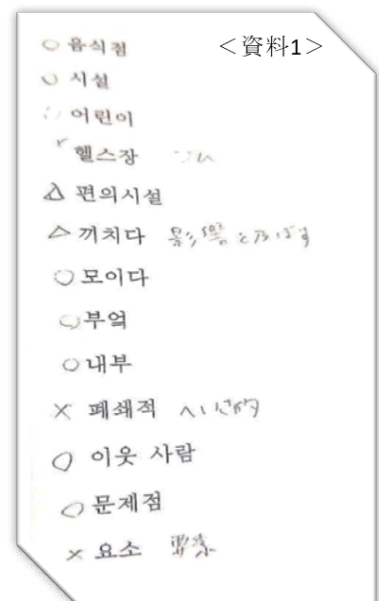 ○ 음식점 ＜資料1＞
○ 시설
○ 어린이
헬스장 ジム
△ 편의시설
△ 끼치다 影響を及ぼす
○ 모이다
○ 부엌
○ 내부
× 폐쇄적
○ 이웃 사람
○ 문제점
× 요소 要素